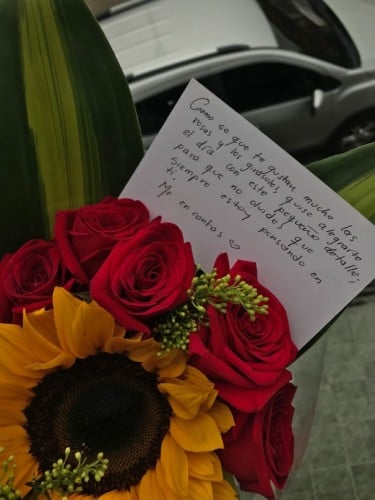 Como se que te gustan mucho las
rosas y los girasoles, quise alegrarte
el día con este pequeño detalle;
para que no dudes que
siempre estoy pensando en
ti.
Me encantas ♡